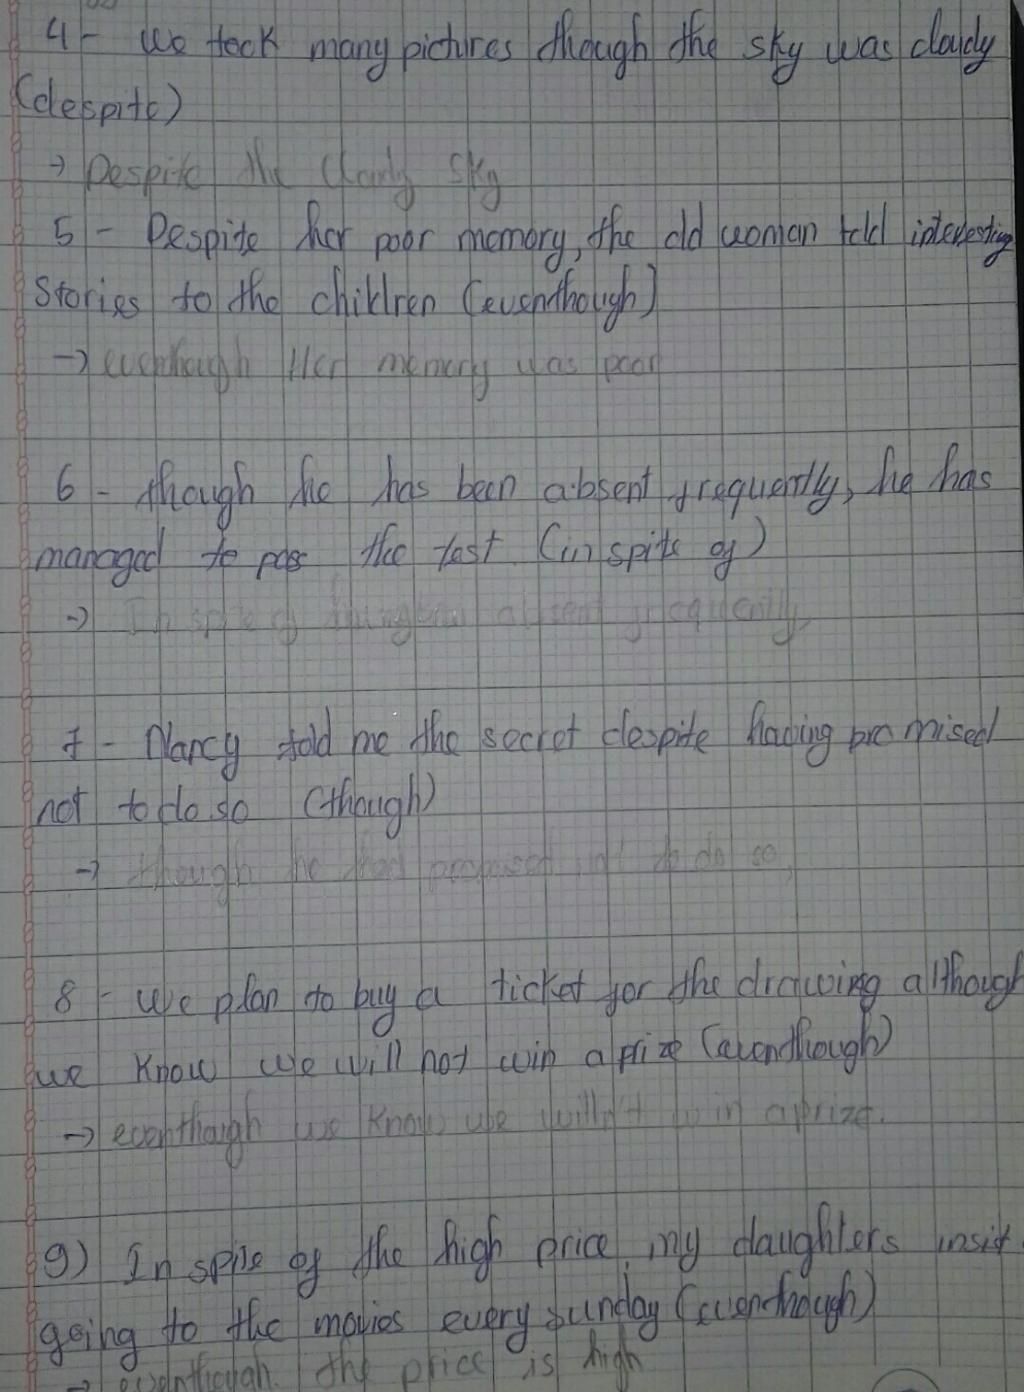 4- we tock many pictures though the sky was cloudy
(despite)
→ Despite the cloudy sky
5- Despite her poor memory, the old woman told interesting
stories to the children (eventhough)
→ eventhough Her memory was poor
6- though he has been absent frequently, he has
managed to pass the test (in spite of)
→ In spite of absent frequently,
7- Nancy told me the secret despite having promised
not to do so (though)
→ though he had promised not to do so
8- we plan to buy a ticket for the drawing although
we know we will not win a prize (eventhough)
→ eventhough we know we willn't win a prize.
9) In spite of the high price, my daughters insist
going to the movies every sunday (eventhough)
→ eventhough the price is high